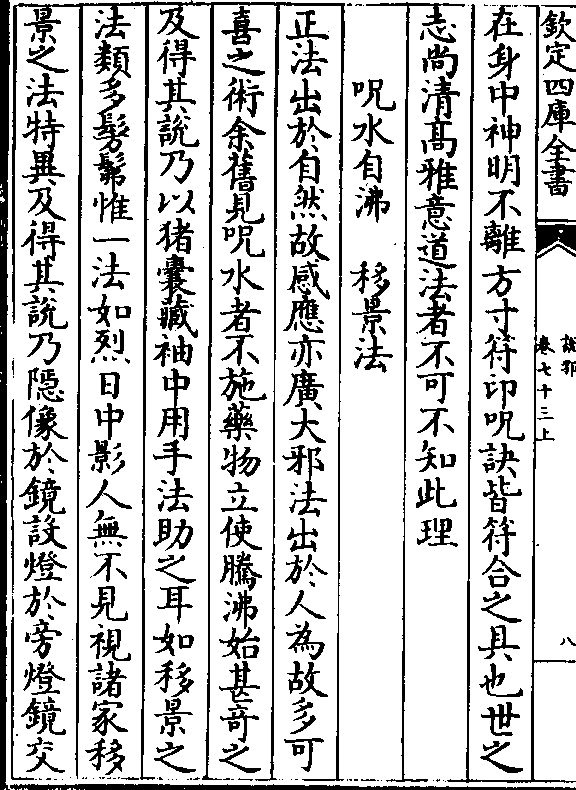 欽定四庫全書
說郛
卷七十三上
八
在身中神明不離方寸符印呪訣皆符合之具也世之
志尚清髙雅意道法者不可不知此理
呪水自沸　移景法
正法出於自然故感應亦廣大邪法出於人為故多可
喜之術余舊見呪水者不施藥物立使騰沸始甚奇之
及得其說乃以猪囊藏袖中用手法助之耳如移景之
法類多髣髴惟一法如烈日中影人無不見視諸家移
景之法特異及得其說乃隠像於鏡設燈於旁燈鏡交